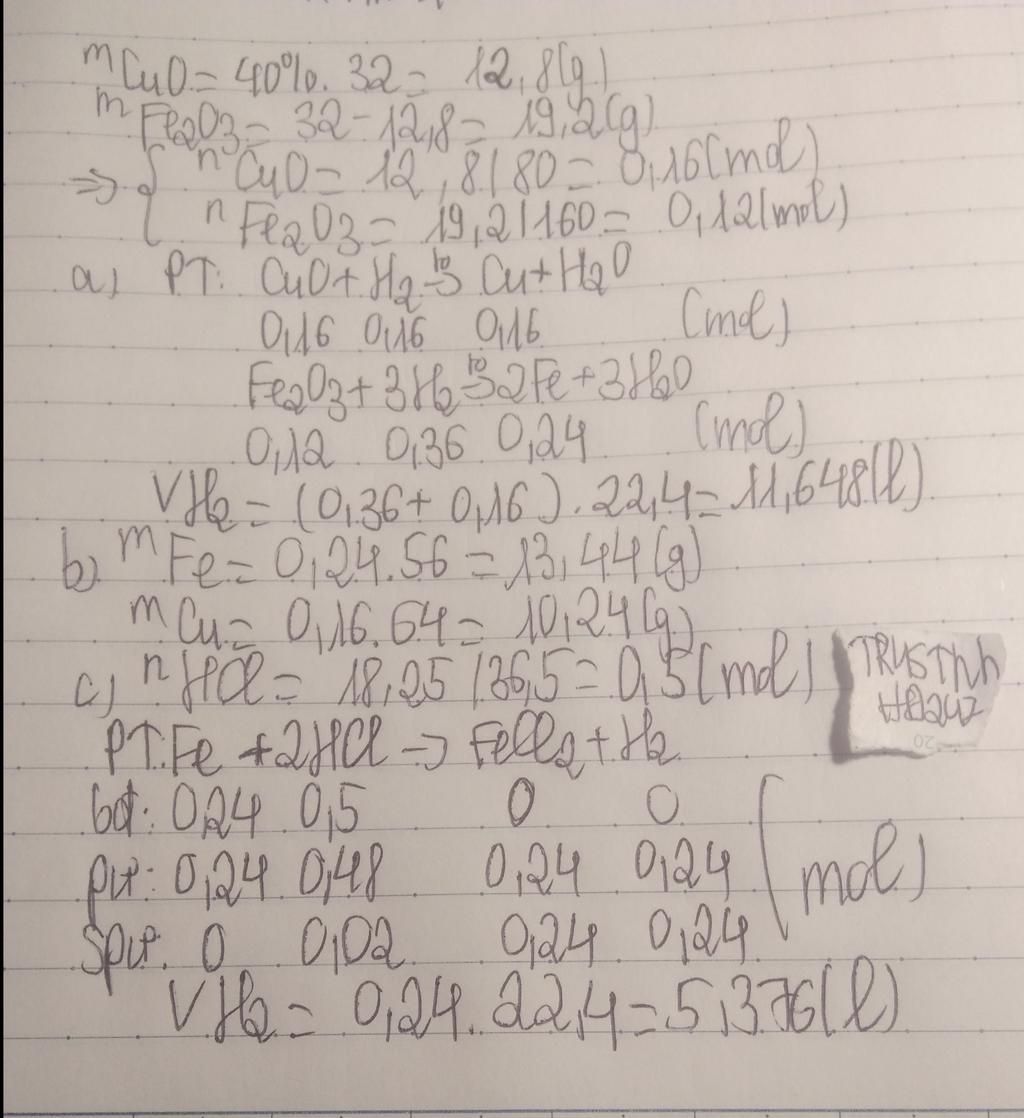 mCuO = 40%. 32 = 12,8(g)
mFe2O3 = 32 - 12,8 = 19,2(g)
=> { nCuO = 12,8/80 = 0,16(mol)
nFe2O3 = 19,2/160 = 0,12(mol)
a) PT: CuO + H2 -to-> Cu + H2O
0,16 0,16 0,16 (mol)
Fe2O3 + 3H2 -to-> 2Fe + 3H2O
0,12 0,36 0,24 (mol)
VH2 = (0,36 + 0,16). 22,4 = 11,648(l)
b) mFe = 0,24.56 = 13,44(g)
mCu = 0,16.64 = 10,24(g)
c) nHCl = 18,25/36,5 = 0,5(mol)
PT: Fe + 2HCl -> FeCl2 + H2
bđ: 0,24 0,5 0 0
pư: 0,24 0,48 0,24 0,24 (mol)
Spư: 0 0,02 0,24 0,24
VH2 = 0,24. 22,4 = 5,376(l)